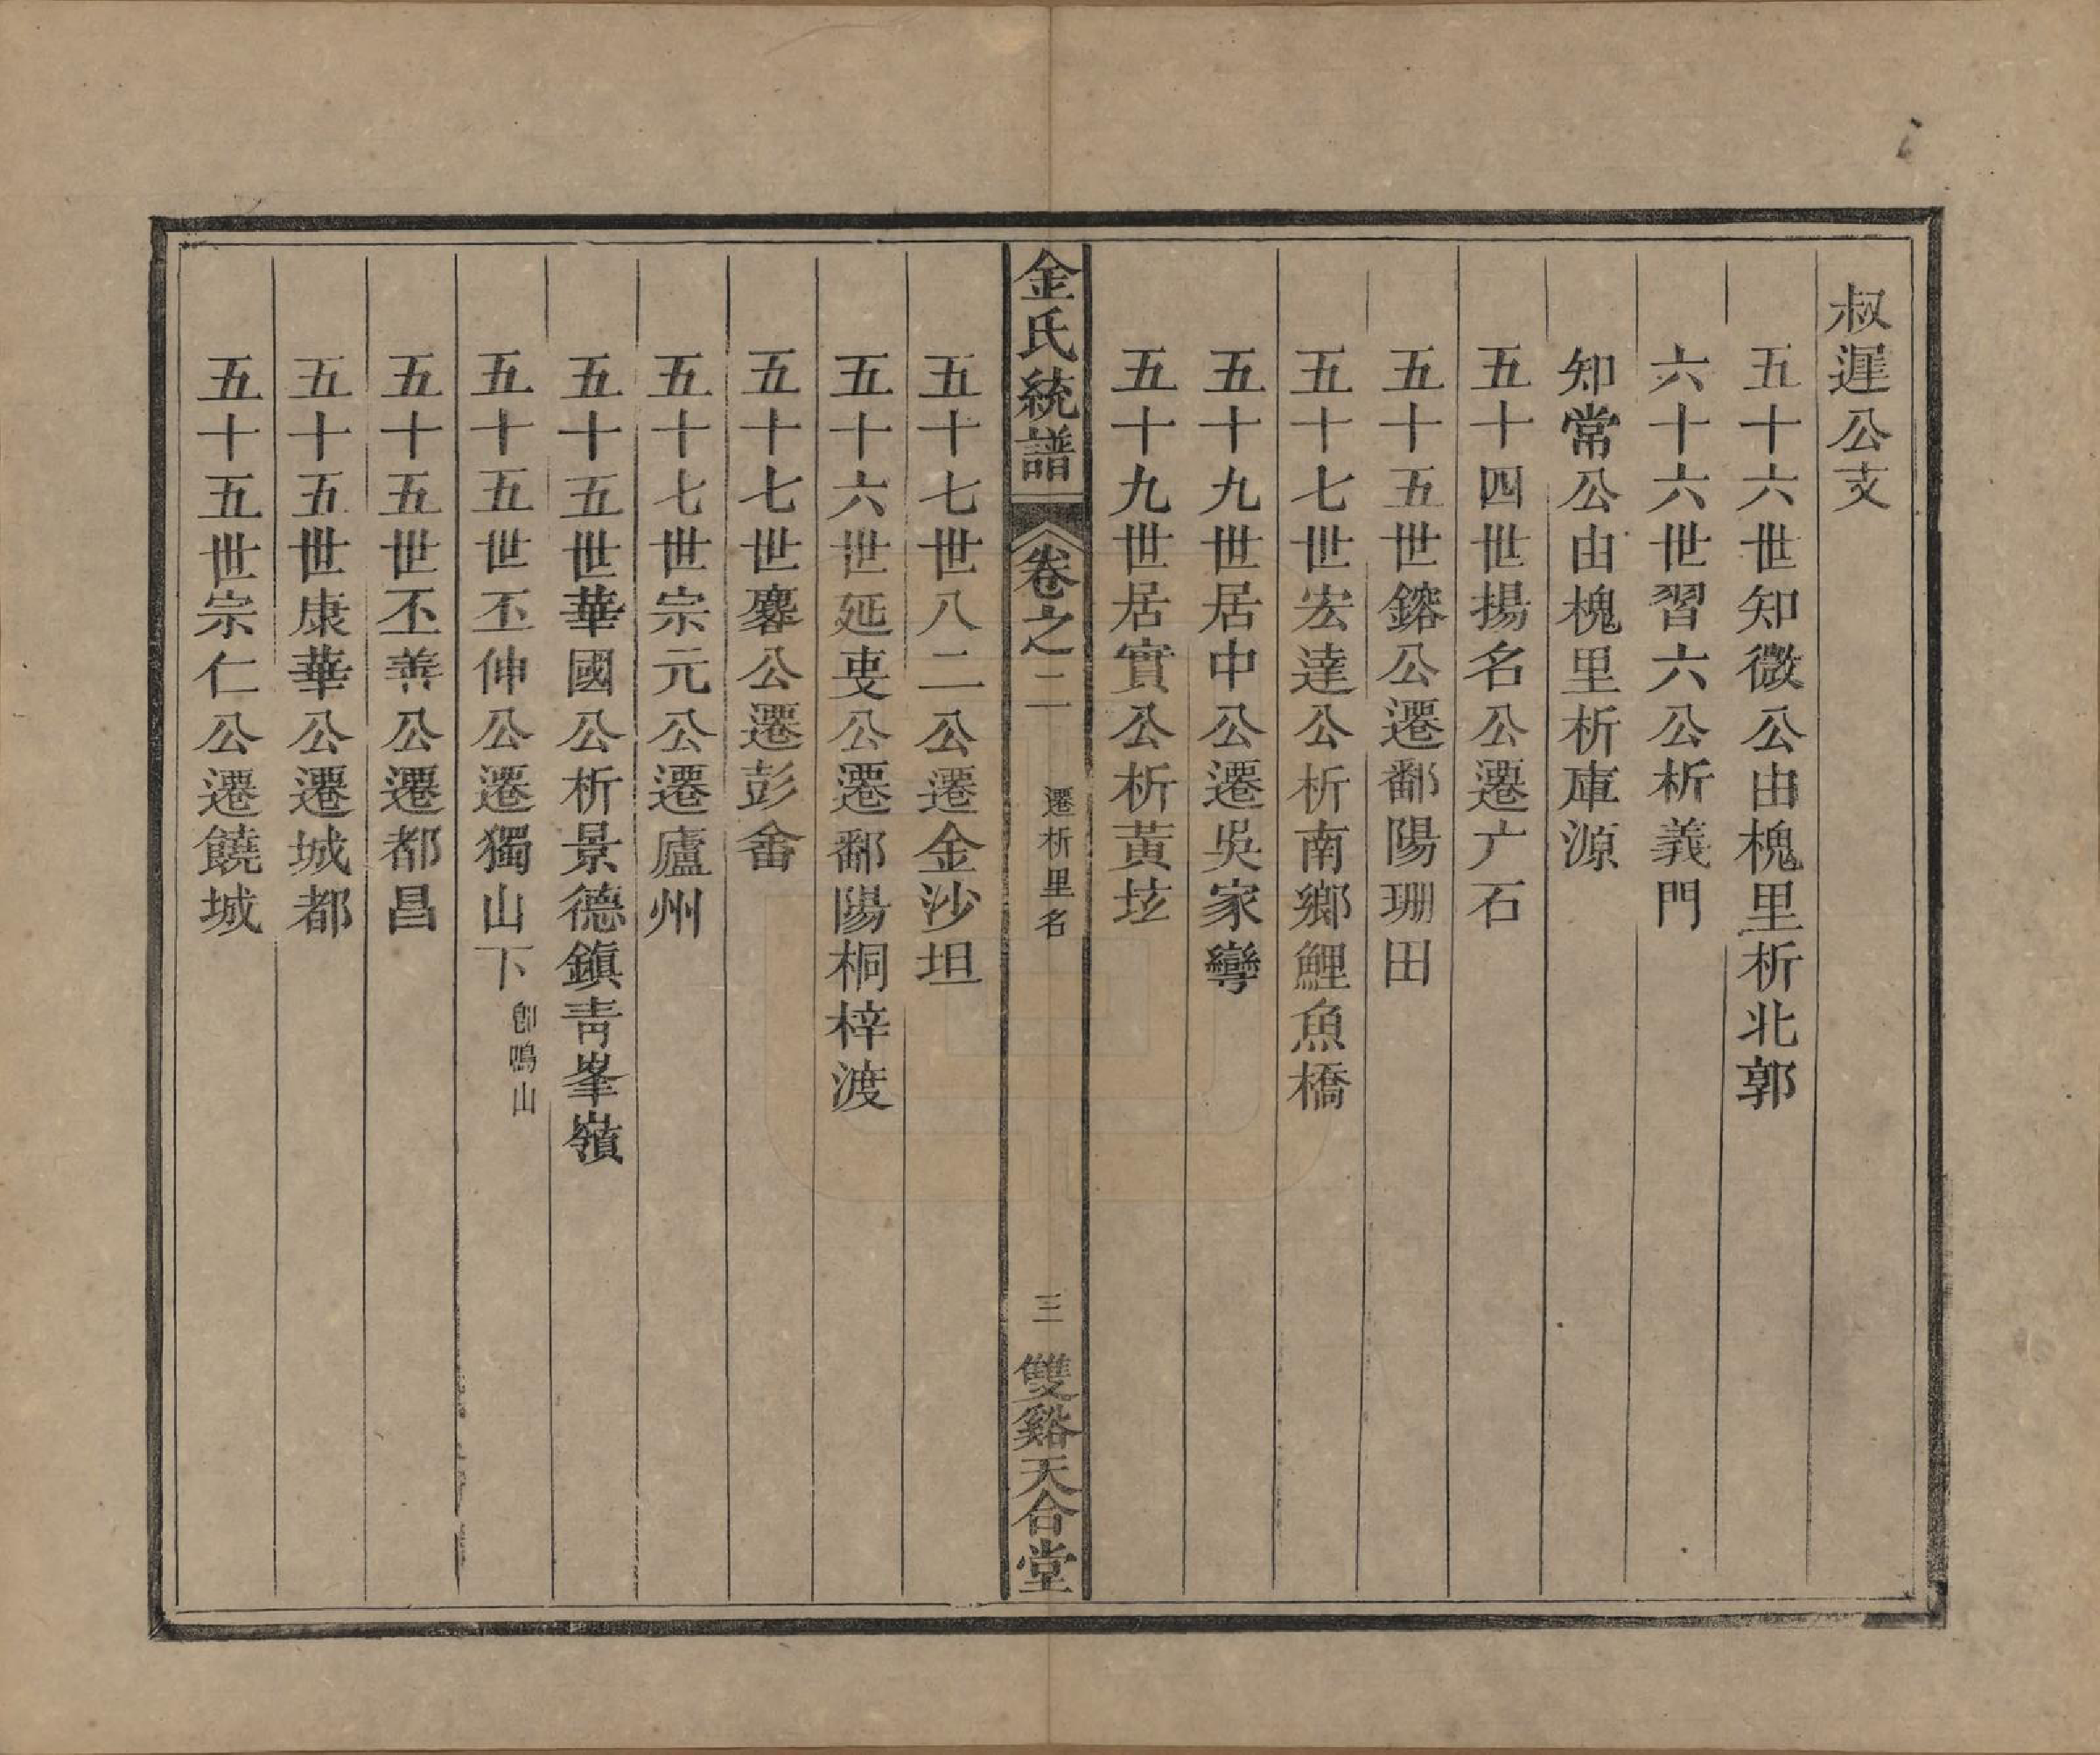 叔遲公支
五十六世知微公由槐里析北郭
六十六世習六公析義門
知常公由槐里析庫源
五十四世揚名公遷广石
五十五世鎔公遷鄱陽珊田
五十七世宏達公析南鄉鯉魚橋
五十九世居中公遷吳家彎
五十九世居實公析黃坑
金氏統譜
卷之二
遷析里名
三
雙谿天合堂
五十七世八二公遷金沙坦
五十六世延叟公遷鄱陽桐梓渡
五十七世麐公遷彭畬
五十七世宗元公遷廬州
五十五世華國公析景德鎮青峯嶺
五十五世丕伸公遷獨山下即鳴山
五十五世丕善公遷都昌
五十五世康華公遷城都
五十五世宗仁公遷饒城